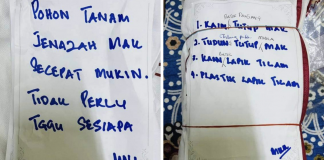 POHON TANAM
JENAZAH MAK
SECEPAT MUKIN.
TIDAK PERLU
TGGU SESIAPA
1. KAIN TUTUP MAK
2. TUDUNG TUTUP MAK
3. KAIN LAPIK TILAM
4. PLASTIK LAPIK TILAM